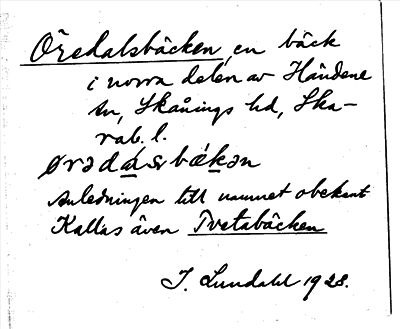 Öredalsbäcken, en bäck
i norra delen av Händene
sn, Skånings hd, Ska-
rab. l.
ørədalsbäkən
Anledningen till namnet obekant
Kallas även Tvetabäcken
J. Lundahl 1928.